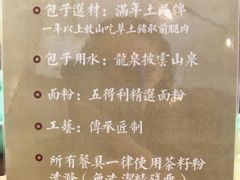 包子選材：滿年土品牌
一年以上放山吃草土豬取前腿肉
包子用水：龍泉披雲山泉
面粉：五得利精選面粉
工藝：傳承匠制
所有餐具一律使用茶籽粉